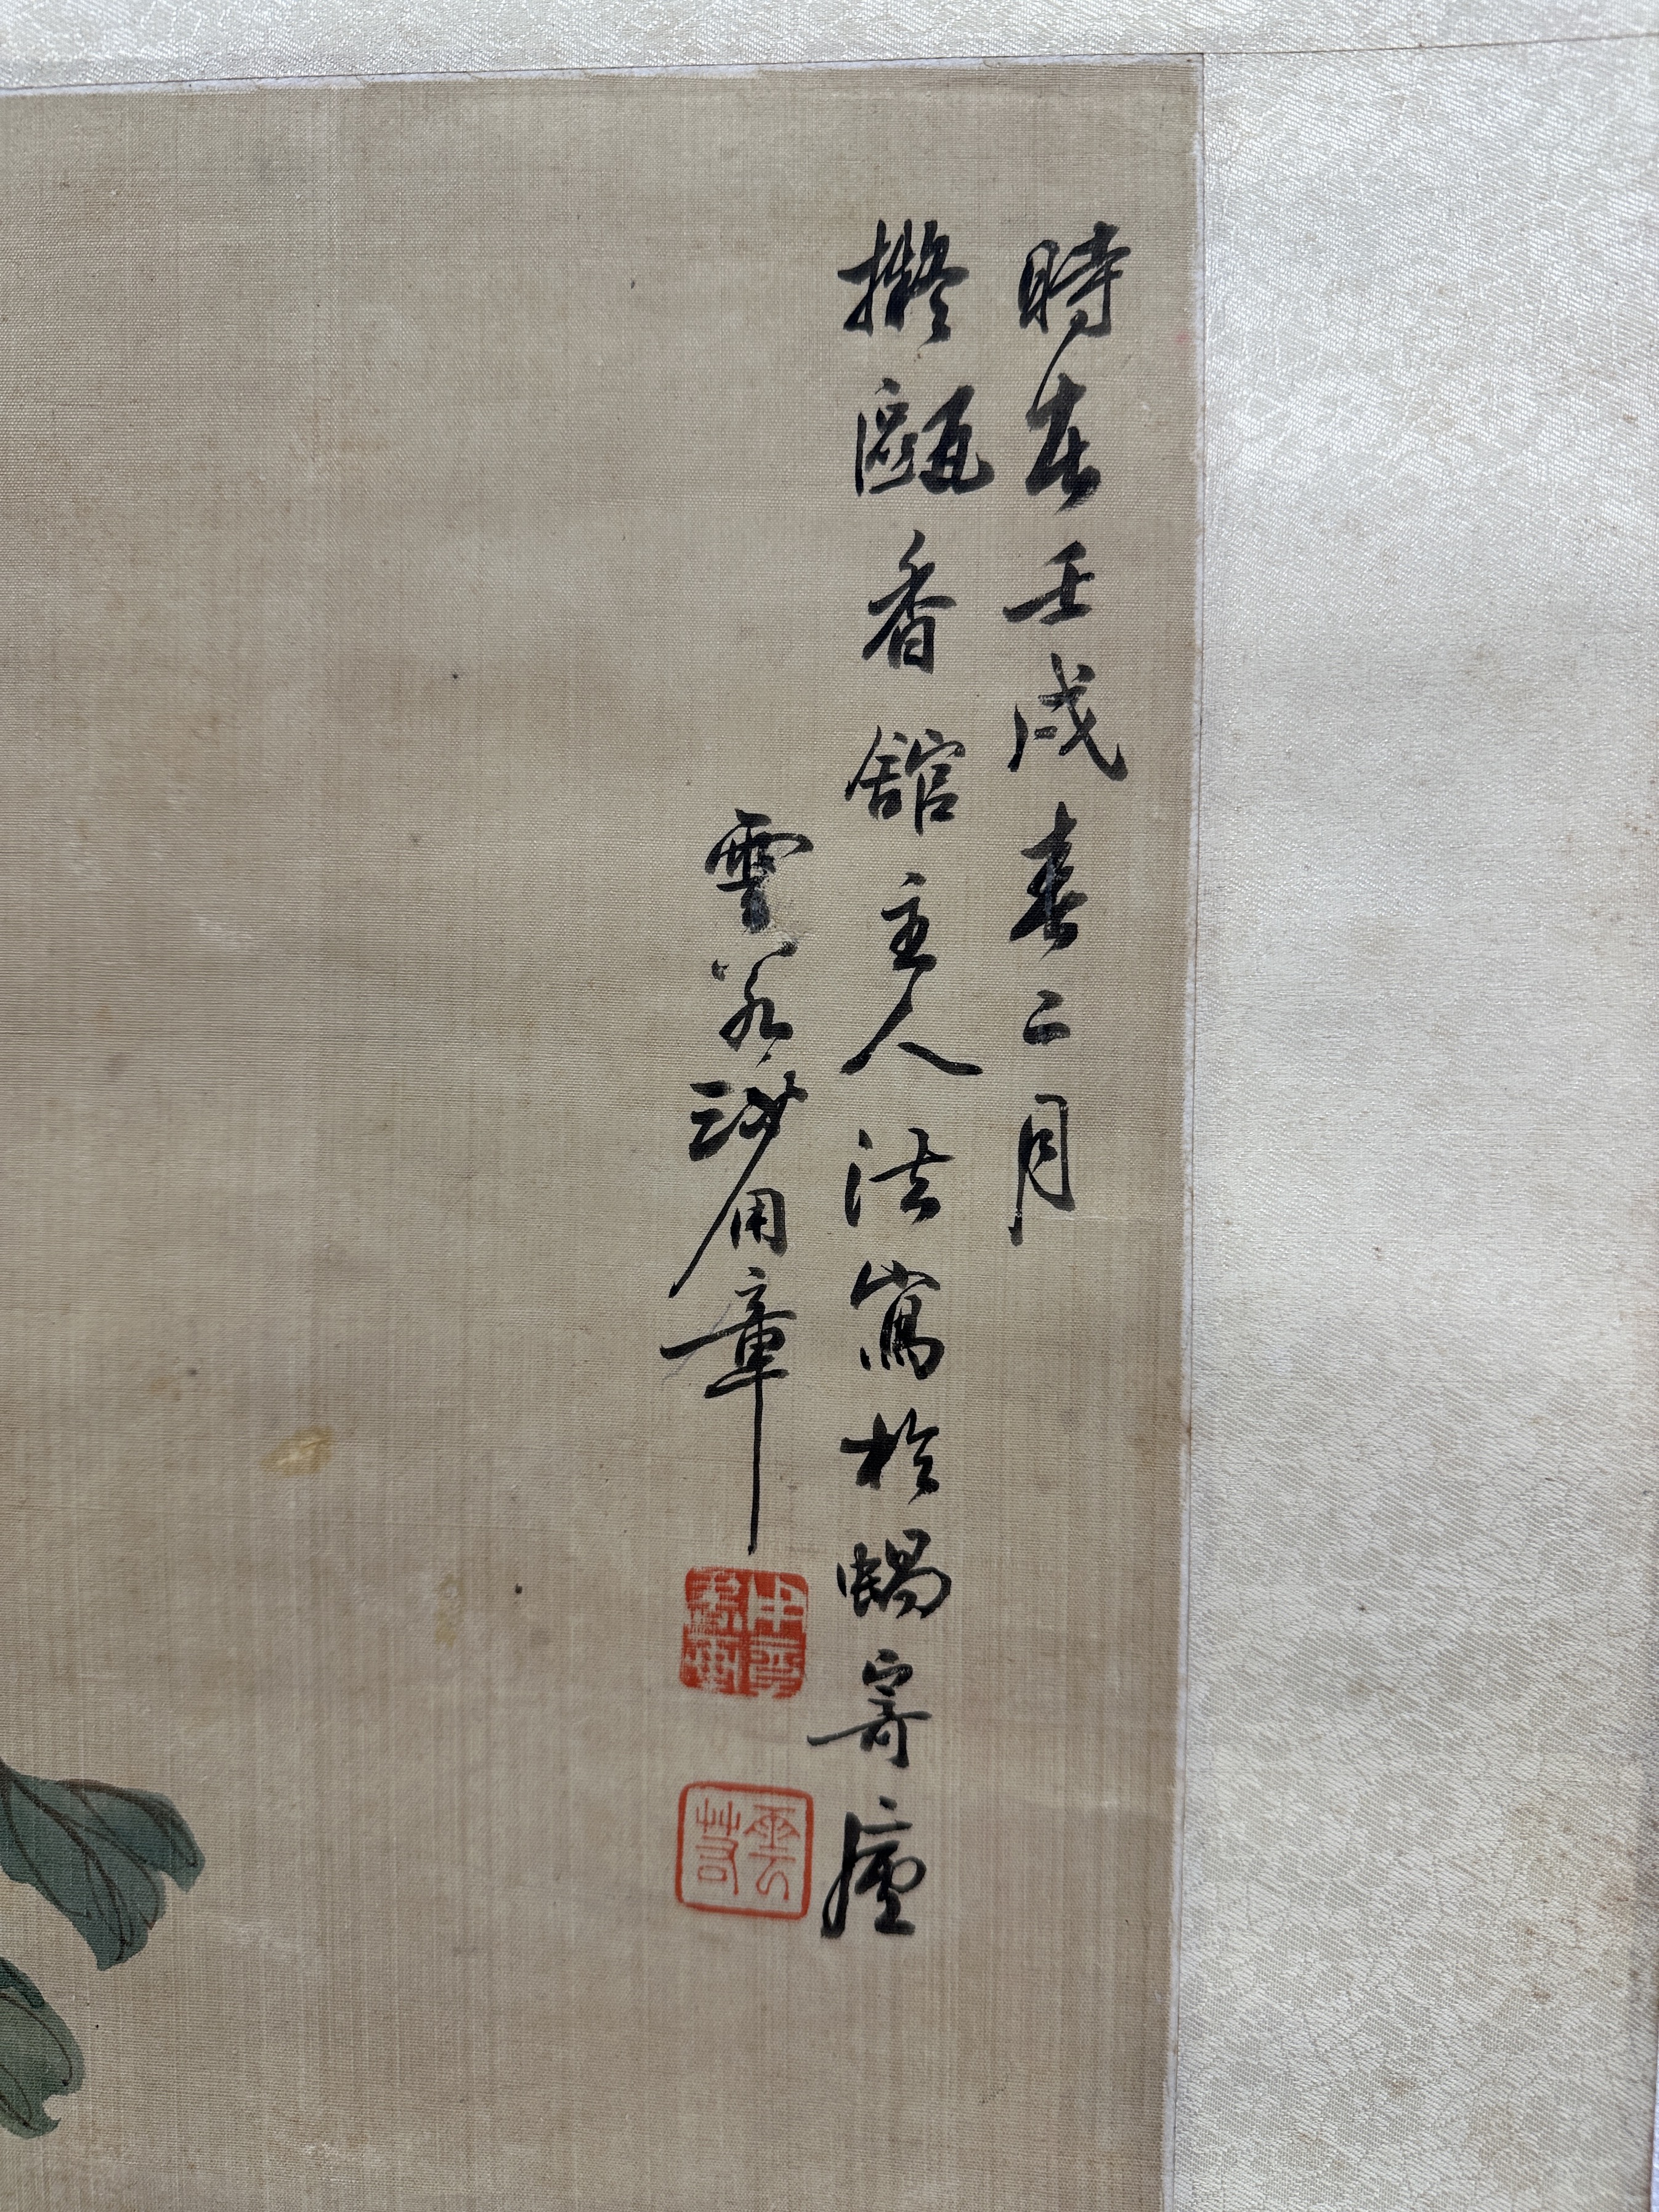 時在壬戌春二月
擬甌香舘主人法寫於蝸寄廬
雲若沙用章
雲若